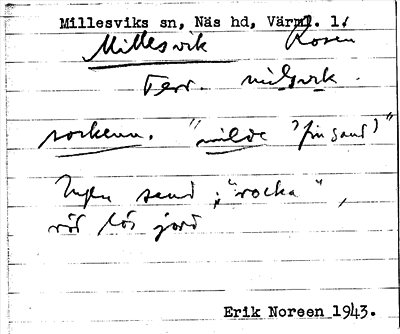 Millesviks sn, Näs hd, Värml. l.
Millesvik Rosen
Terr. milsvik.
sockenn. "milde 'fin sand'"
Ingen sand; "rocka",
röd lös jord
Erik Noreen 1943.